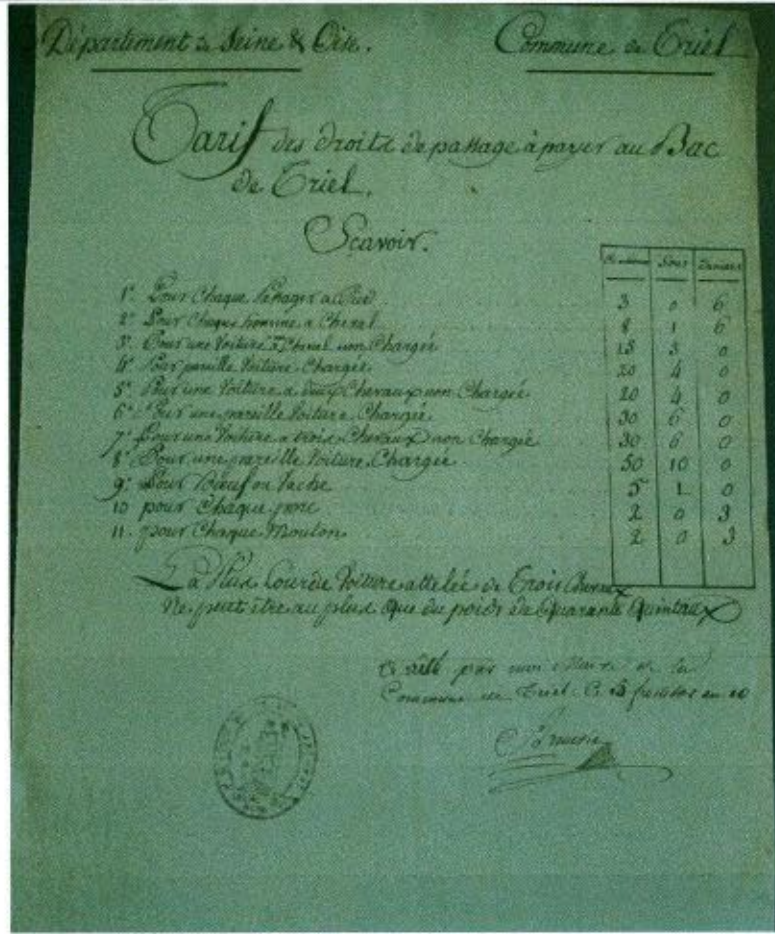 Département de Seine & Oise. Commune de Triel
Tarif des droits de passage à payer au Bac
de Triel.
Scavoir.
Centimes Sous Deniers
1° Pour Chaque Passager à Pied 3 0 6
2° Pour Chaque homme a Cheval 8 1 6
3° Pour une Voiture a Cheval non Chargée 15 3 0
4° Pour pareille Voiture Chargée 20 4 0
5° Pour une Voiture a deux Chevaux non Chargée 20 4 0
6° Pour une pareille Voiture Chargée 30 6 0
7° Pour une Voiture a trois Chevaux non Chargée 30 6 0
8° Pour une pareille Voiture Chargée 50 10 0
9° Pour Boeuf ou Vache 5 1 0
10 pour Chaque porc 2 0 3
11. pour Chaque Mouton 2 0 3
La Plus Lourde Voiture attelée de Trois Chevaux
Ne peut être au plus que du poids de Quarante Quintaux
par moi Maire de la
Commune de Triel Ce 13 an 10